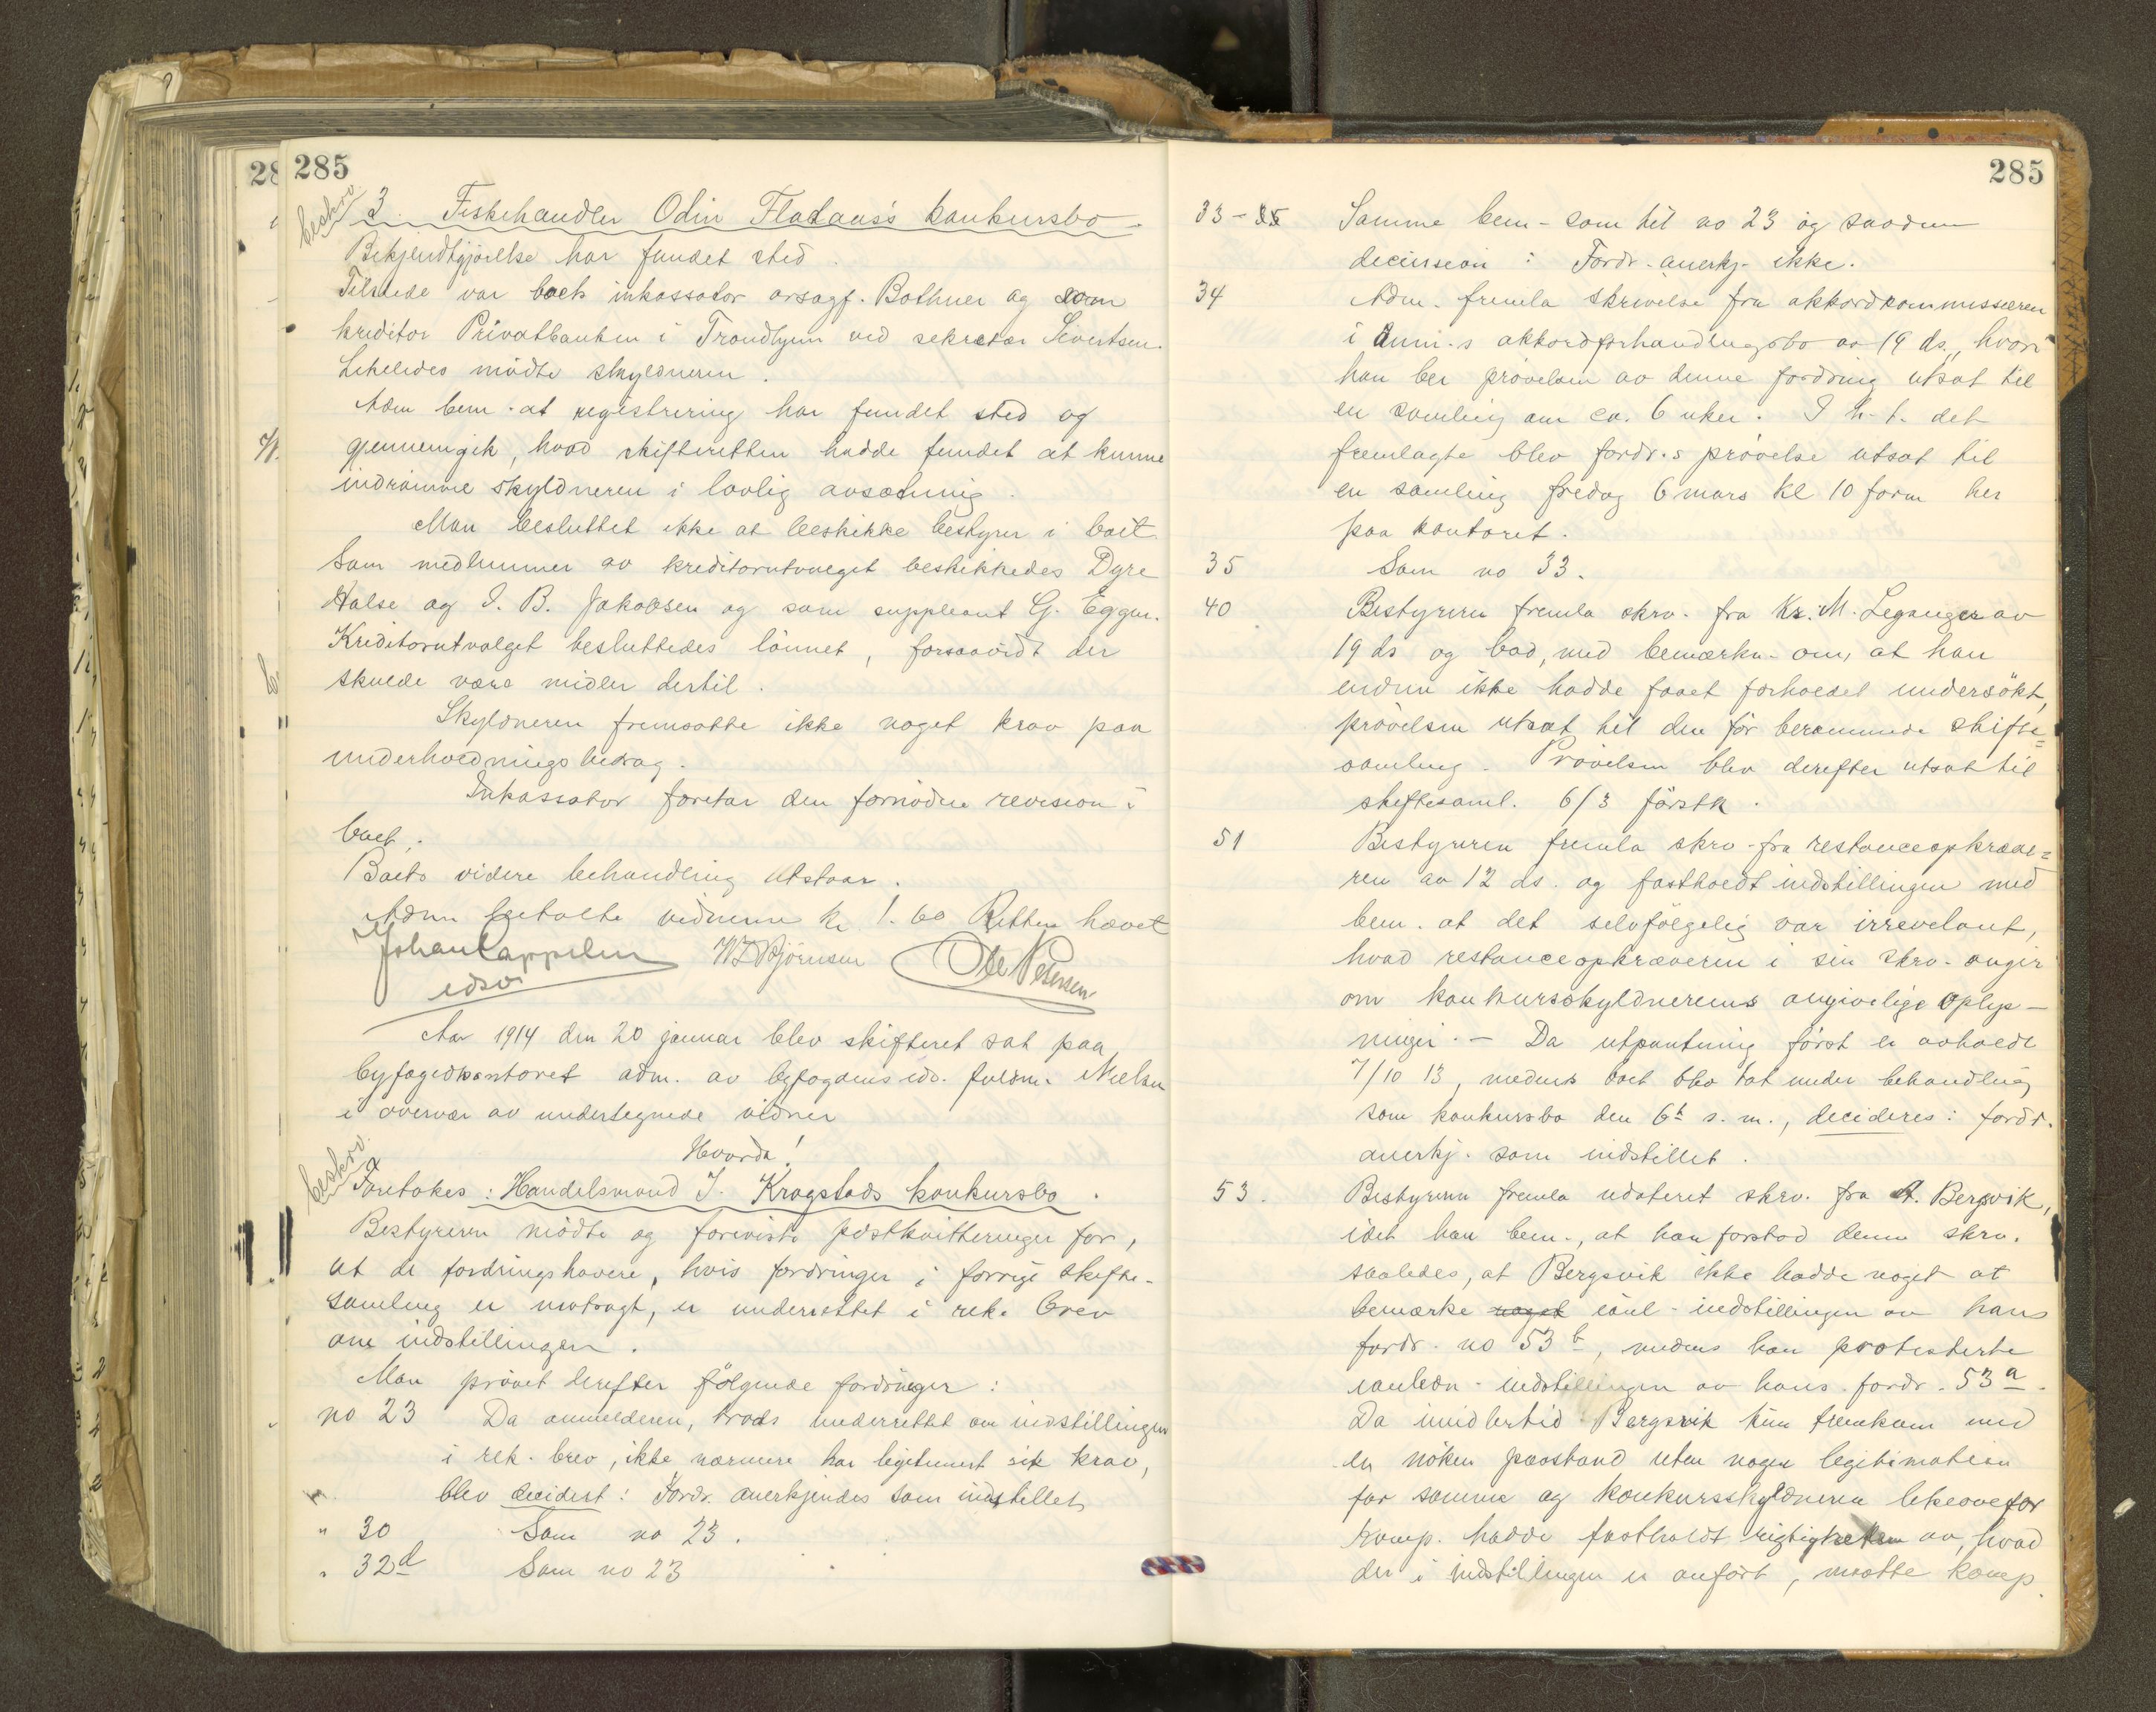 285
beskrv.
3. Fiskehandler Odin Flataus's konkursbo.
Bekjendtgjørelse har fundet sted.
Tilstede var boets inkassator orsagf. Bothner og som
kreditor Privatbanken i Trondhjem ved sekretær Sivertsen.
Likeledes mødte skyldneren.
Adm bem. at registrering har fundet sted og
gjennemgik, hvad skifteretten hadde fundet at kunne
indrømme skyldneren i lovlig avsætning.
Man besluttet ikke at beskikke bestyrer i boet.
Som medlemmer av kreditorutvalget beskikkedes Dyre
Halse og I. B. Jakobsen og som suppleant G. Eggen.
Kreditorutvalget besluttedes lønnet, forsaavidt der
skulde være midler dertil.
Skyldneren fremsatte ikke noget krav paa
underholdningsbidrag.
Inkassator foretar den fornødne revision i
boet.
Boets videre behandling utstaar.
Adm betalte vidnerne kr 1.60 Retten hævet
Johan Cappelen W Bjørnsen Ole Petersen
edsv
Aar 1914 den 20 januar blev skifteret sat paa
byfogedkontoret adm. av byfogdens eds. fuldm. Nielsen
i overvær av undertegnede vidner
Hvorda!
beskrv.
Foretokes: Handelsmand J. Krogstads konkursbo.
Bestyreren mødte og foreviste postkvitteringer for,
at de fordringshavere, hvis fordringer i forrige skifte-
samling er motsagt, er underrettet i rek. brev
om indstillingen.
Man prøvet derefter følgende fordringer:
no 23 Da anmelderen, trods underrettet om indstillingen
i rek. brev, ikke nærmere har legitimert sit krav,
blev decidert: Fordr. anerkjendes som indstillet
" 30 Som no 23.
" 32d Som no 23
285
33 - 35 Samme bem - som til no 23 og saadan
decission: Fordr. anerkj. ikke.
34 Adm. fremla skrivelse fra akkordkommissæren
i anm.s akkordforhandlingsbo av 19 ds., hvori
han ber prøvelsen av denne fordring utsat til
en samling om ca. 6 uker. I h. t. det
fremlagte blev fordr.s prøvelse utsat til
en samling fredag 6 mars kl 10 form her
paa kontoret.
35 Som no 33.
40 Bestyreren fremla skrv. fra Kr. M. Leganger av
19 ds og bad, med bemærkn. om, at han
endnu ikke hadde faaet forholdet undersøkt,
prøvelsen utsat til den før berammede skifte=
samling. Prøvelsen blev derefter utsat til
skiftesaml. 6/3 førstk.
51 Bestyreren fremla skrv. fra restanceopkræve=
ren av 12 ds. og fastholdt indstillingen med
bem. at det selvfølgelig var irrevelant,
hvad restanceopkræveren i sin skrv. angir
om konkursskyldnerens angivelige oplys-
ninger. - Da utpantning først er avholdt
7/10 13, medens boet blev tat under behandling
som konkursbo den 6t s. m., decideres: fordr.
anerkj. som indstillet.
53. Bestyreren fremla udateret skrv. fra A. Bergsvik,
idet han bem., at han forstod denne skrv.
saaledes, at Bergsvik ikke hadde noget at
bemærke noget indstillingen av hans
fordr. no 53 b, medens han protesterte
indstillingen av hans fordr. 53 a.
Da imidlertid Bergsvik kun fremkom med
en nøken paastand uten nogen legitimation
for samme og konkursskyldneren likeoverfor
komp. hadde fastholdt rigtigheten av, hvad
der i indstillingen er anført, maatte komp.